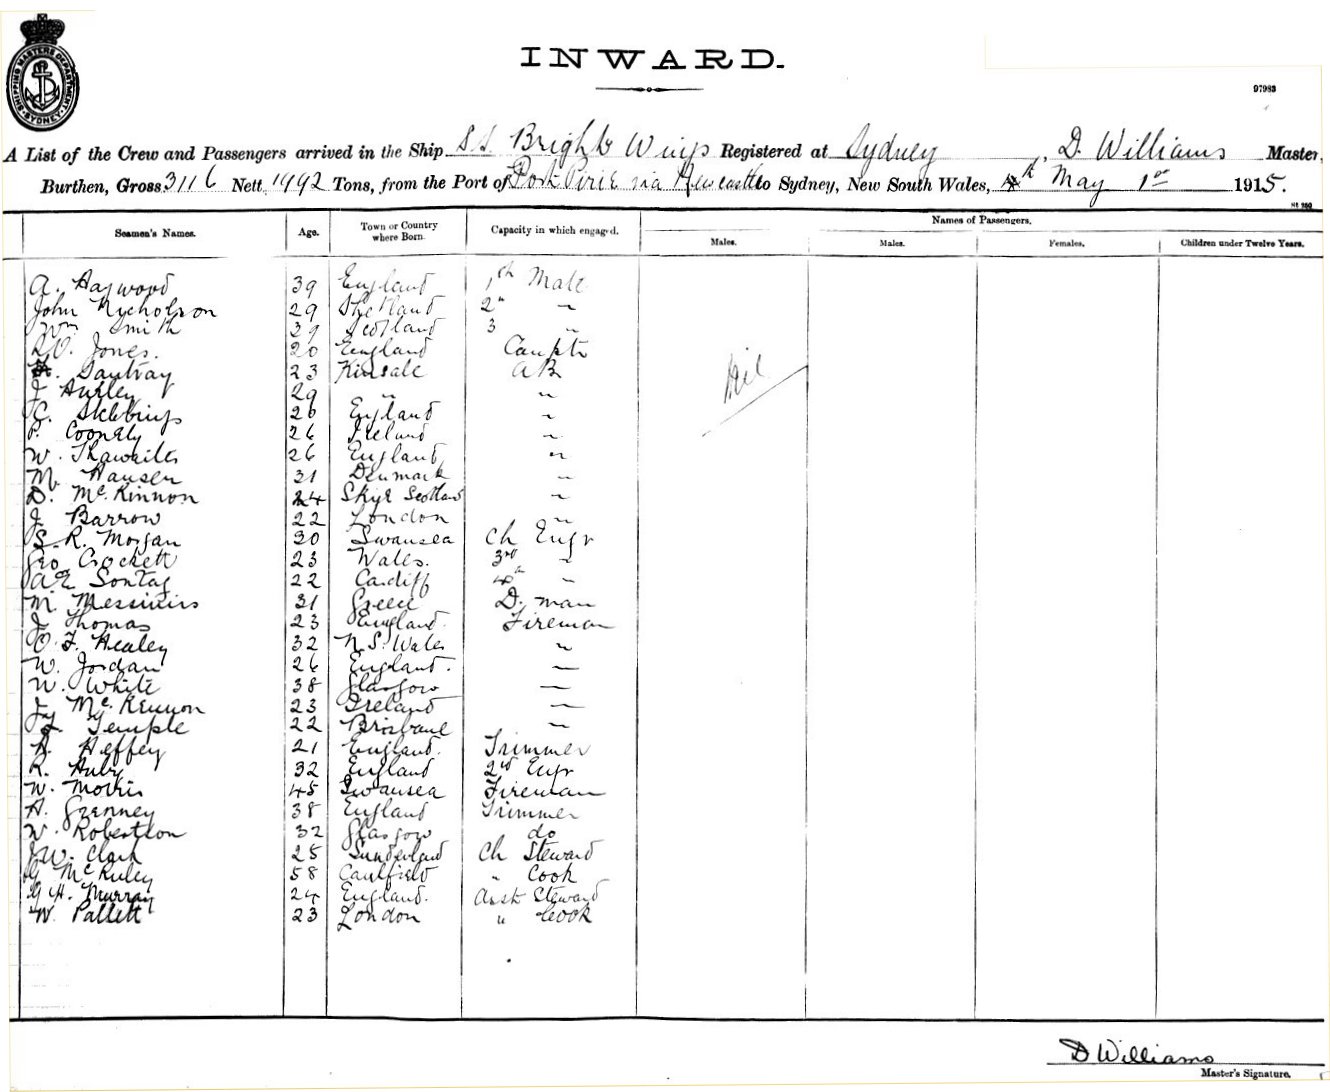 SHIPPING MASTERS DEPARTMENT SYDNEY
INWARD.
97983
A List of the Crew and Passengers arrived in the Ship S.S. Bright Wings Registered at Sydney, D. Williams Master,
Burthen, Gross 3116 Nett 1992 Tons, from the Port of Port Pirie via Newcastle to Sydney, New South Wales, May 1st 1915.
Seamen's Names. Age. Town or Country where Born. Capacity in which engaged. Names of Passengers.
Males. Males. Females. Children under Twelve Years.
A. Haywood 39 England 1st Mate
John Nicholson 29 Shetland 2" "
Wm Smith 39 Scotland 3 "
Jones. 20 England
23 Kinsale AB
J. Hurley 29 " "
C. 26 England "
P. 26 Ireland "
W. Thawaites 26 England "
M. Hansen 31 Denmark "
D. McKinnon 24 Skye Scotland "
J. Barrow 22 London "
S. R. Morgan 30 Swansea Ch Engr
Geo Crockett 23 Wales. 3rd "
A E Sontag 22 Cardiff 4th "
M. Messinirs 31 Greece D. man
J. Thomas 23 England. Fireman
O. F. Healey 32 N.S. Wales "
W. Jordan 26 England. "
W. White 38 Glasgow "
McKennon 23 Ireland "
Temple 22 Brisbane "
H. Heffey 21 England. Trimmer
R. Auby 32 England 2nd Engr
W. Morris 45 Swansea Fireman
A. Grenney 38 England Trimmer
W. Robertson 32 Glasgow do
J.W. Clark 25 Sunderland Ch Steward
G McKuley 58 Caulfield " Cook
G H. Murray 24 England. Asst Steward
W. Pallett 23 London " Cook
Nil
D Williams
Master's Signature.